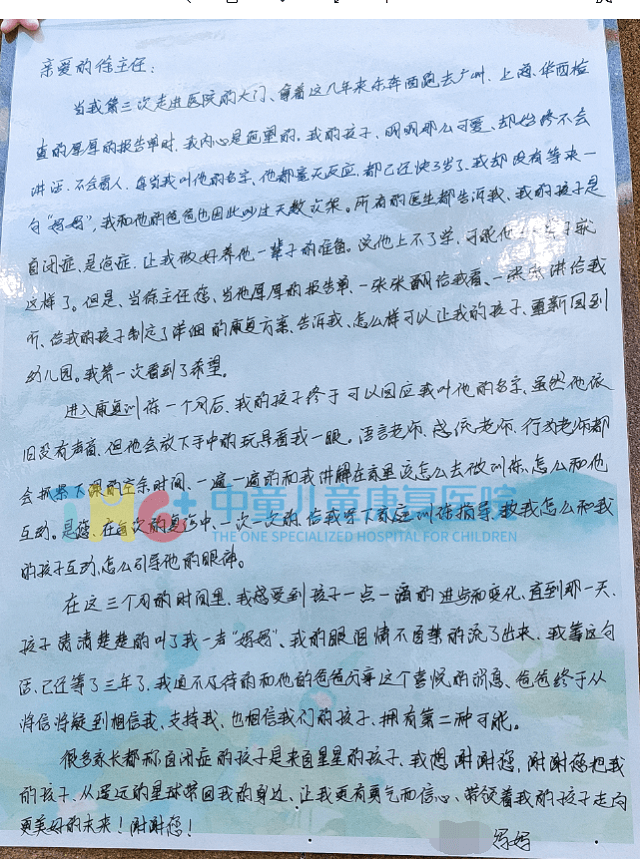 亲爱的徐主任:
当我第三次走进医院的大门、拿着这几年来东奔西跑去广州、上海、华西检
查的厚厚的报告单时,我内心是绝望的。我的孩子、明明那么可爱、却始终不会
讲话、不会看人、每当我叫他的名字、他都毫无反应、都已经快3岁了、我却没有等来一
句“妈妈”,我和他的爸爸也因此吵过无数次架。所有的医生都告诉我、我的孩子是
自闭症、是癌症、让我做好养他一辈子的准备。说他上不了学、可能他一辈子就
这样了。但是、当徐主任您、当他厚厚的报告单、一张张翻给我看、一张张讲给我
听、给我的孩子制定了详细的康复方案、告诉我、怎么样可以让我的孩子、重新回到
幼儿园。我第一次看到了希望。
进入康复训练一个月后、我的孩子终于可以回应我叫他的名字、虽然他依
旧没有声音、但他会放下手中的玩具看我一眼。语言老师、感统老师、行为老师都
会抓紧下课的空余时间、一遍一遍的和我讲解在家里该怎么去做训练、怎么和他
互动。是您、在每次的复诊中、一次一次的、给我写下家庭训练指导、教我怎么和我
的孩子互动、怎么引导他的眼神。
在这三个月的时间里、我感受到孩子一点一滴的进步和变化、直到那一天、
孩子清清楚楚的叫了我一声“妈妈”、我的眼泪情不自禁的流了出来、我等这句
话、已经等了三年了、我迫不及待的和他的爸爸分享这个喜悦的消息、爸爸终于从
将信将疑到相信我、支持我、也相信我们的孩子、拥有第二种可能。
很多家长都称自闭症的孩子是来自星星的孩子、我想谢谢您,谢谢您把我
的孩子、从遥远的星球带回我的身边、让我更有勇气而信心、带领着我的孩子走向
更美好的未来!谢谢您!
妈妈
中童儿童康复医院
THE ONE SPECIALIZED HOSPITAL FOR CHILDREN